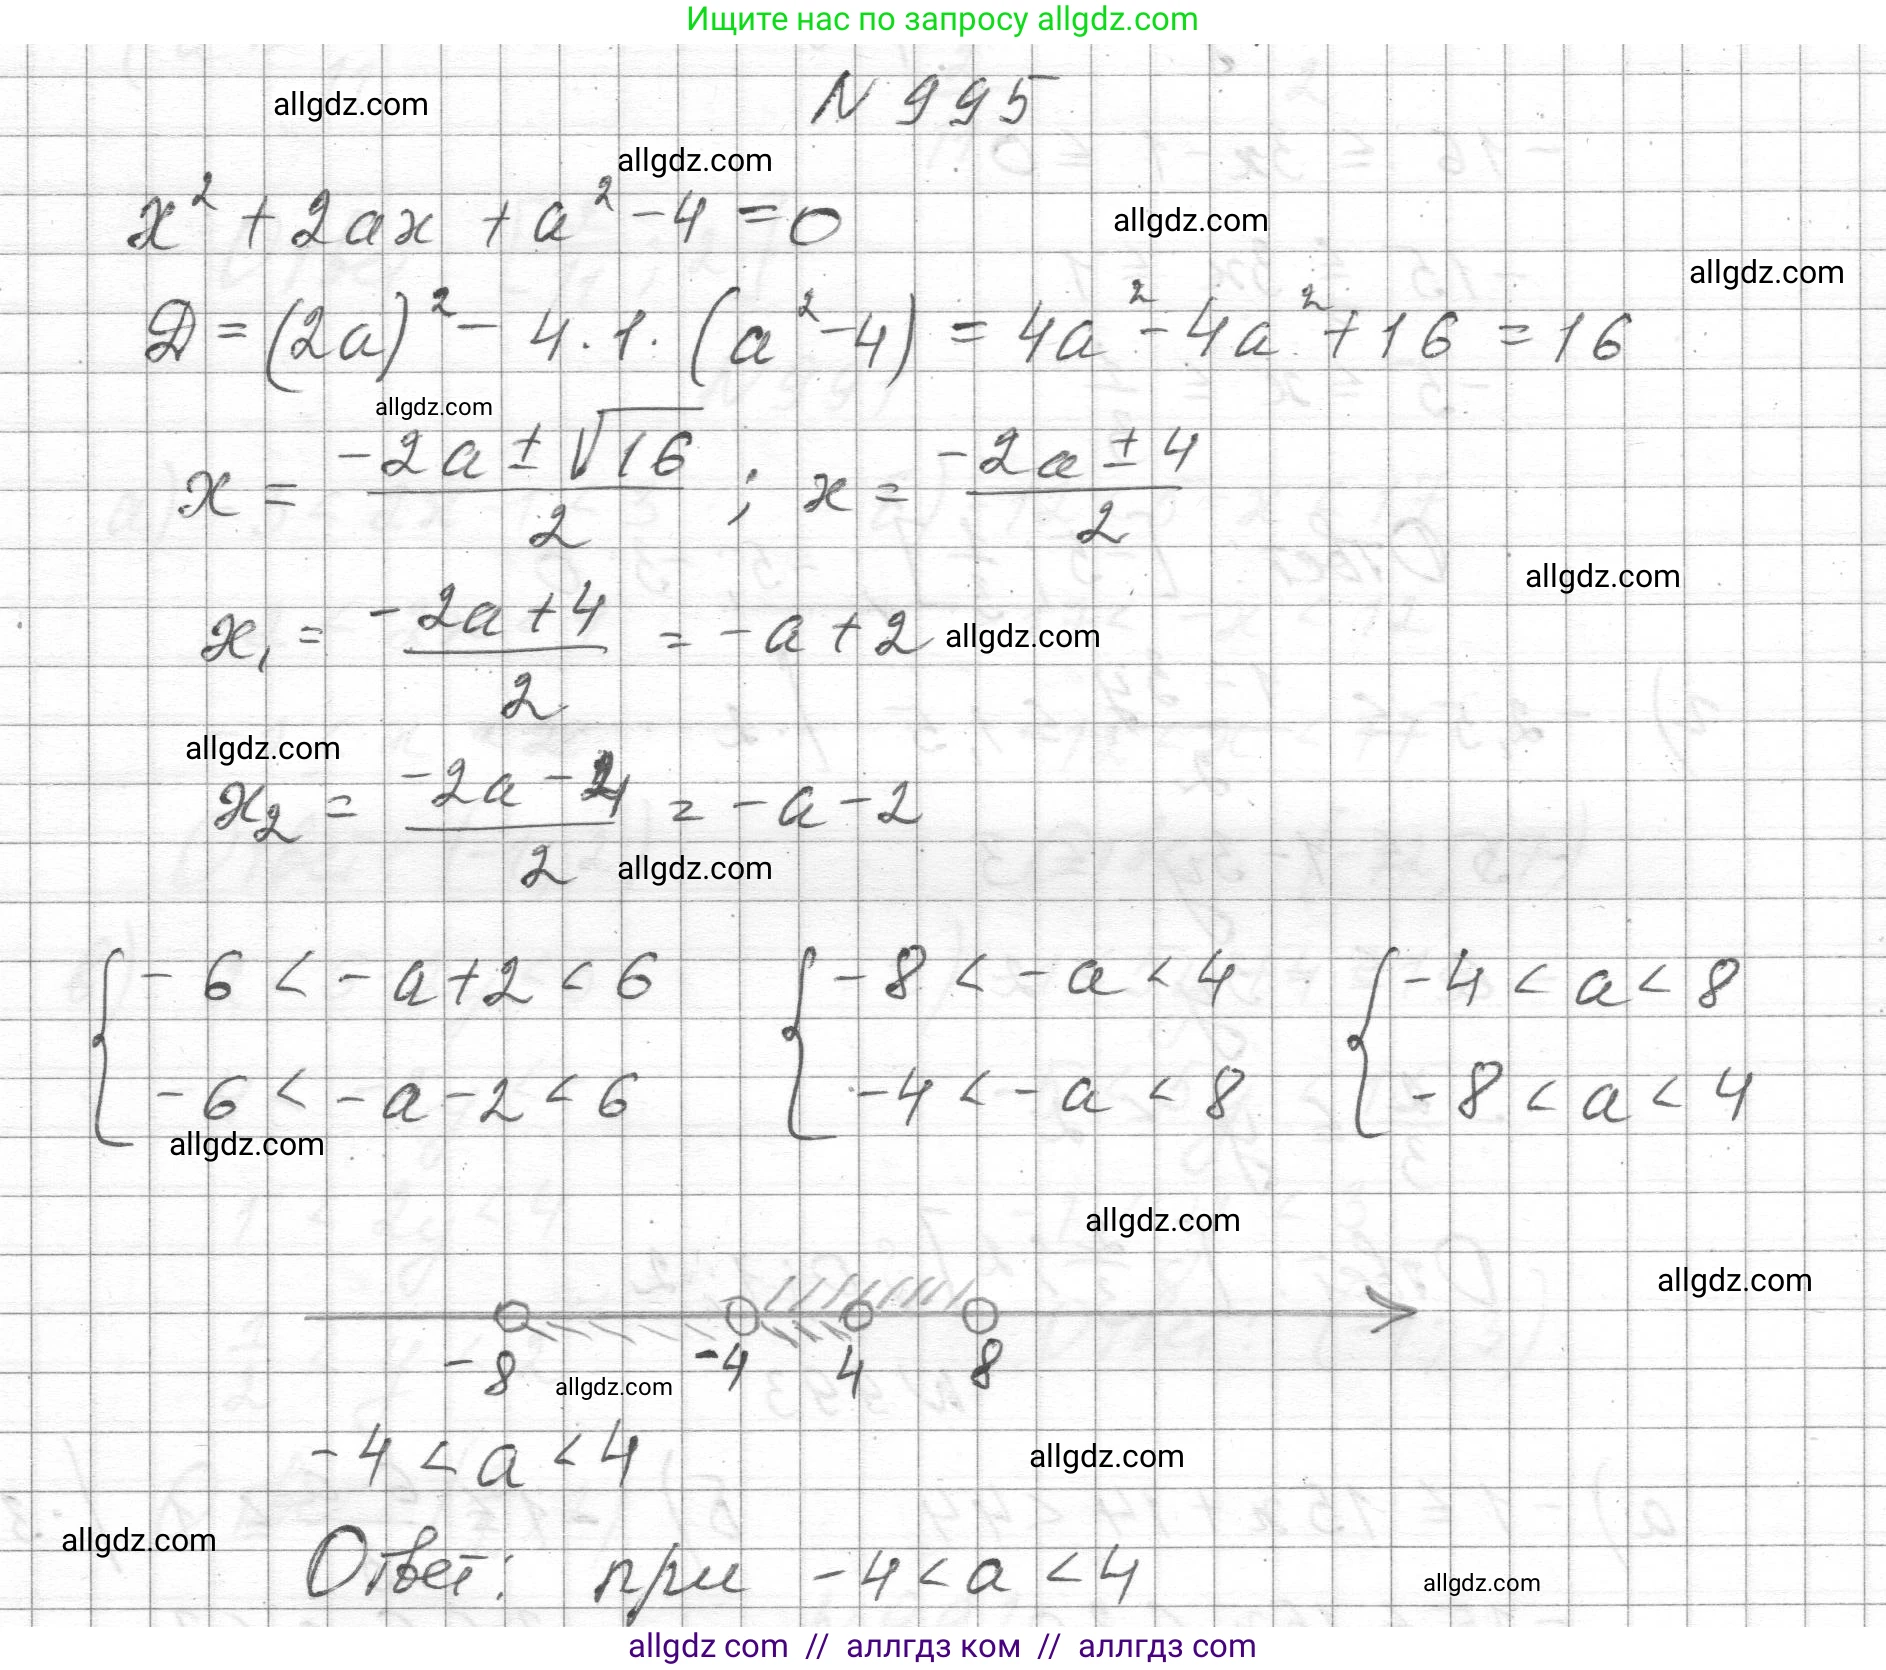 Ищите нас по запросу allgdz.com
allgdz.com
N 995
allgdz.com
x² + 2ax + a² - 4 = 0
allgdz.com
allgdz.com
D = (2a)² - 4 · 1 · (a² - 4) = 4a² - 4a² + 16 = 16
allgdz.com
x = (-2a ± √16)/2 ; x = (-2a ± 4)/2
allgdz.com
x₁ = (-2a + 4)/2 = -a + 2
allgdz.com
allgdz.com
x₂ = (-2a - 4)/2 = -a - 2
allgdz.com
{ -6 < -a + 2 < 6 { -8 < -a < 4 { -4 < a < 8
-6 < -a - 2 < 6 -4 < -a < 8 -8 < a < 4
allgdz.com
allgdz.com
allgdz.com
-8 -4 4 8
allgdz.com
-4 < a < 4
allgdz.com
allgdz.com
Ответ: при -4 < a < 4
allgdz.com
allgdz com // аллгдз ком // аллгдз com